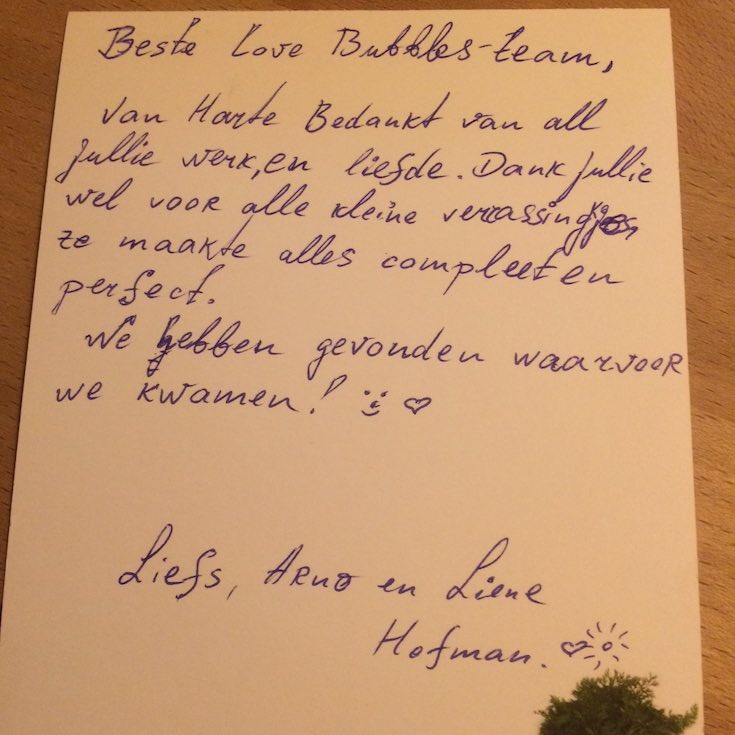 Beste Love Bubbles-team,
Van Harte Bedankt van all
jullie werk, en liefde. Dank jullie
wel voor alle kleine verrassingjes,
ze maakte alles compleet en
perfect.
We hebben gevonden waarvoor
we kwamen! :) ♡
Liefs, Arno en Liene
Hofman. ♡